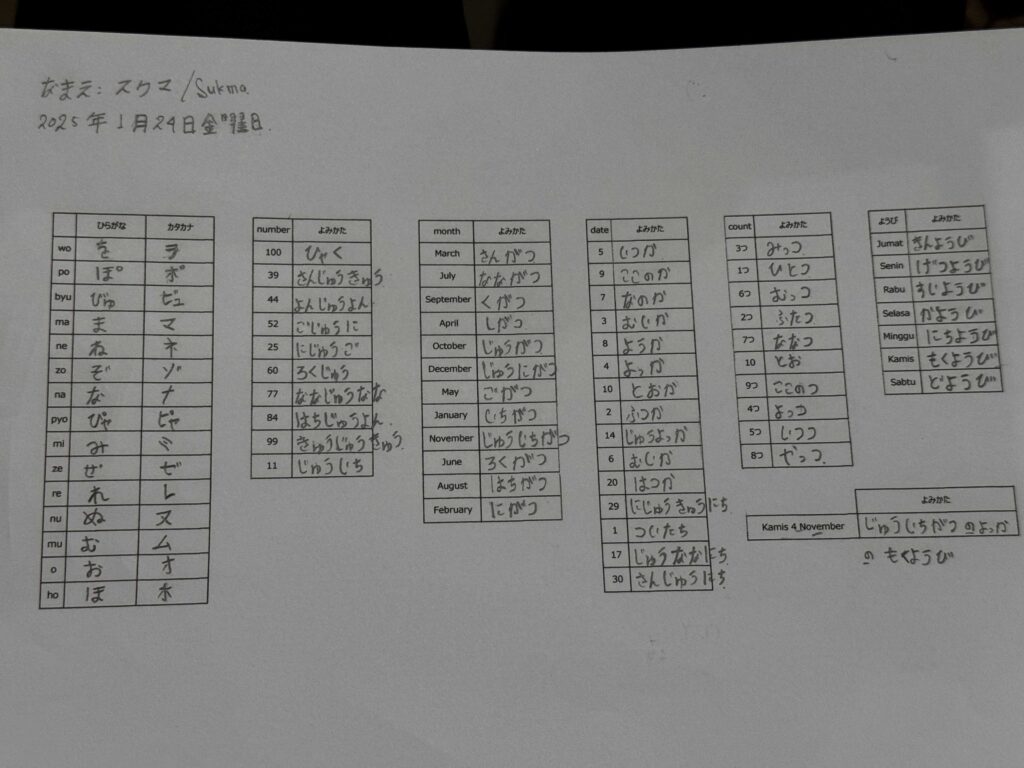 なまえ: スクマ / Sukma
2025年1月24日金曜日.
ひらがな カタカナ
wo を ヲ
po ぽ ポ
byu びゅ ビュ
ma ま マ
ne ね ネ
zo ぞ ゾ
na な ナ
pyo ぴゃ ピャ
mi み ミ
ze ぜ ゼ
re れ レ
nu ぬ ヌ
mu む ム
o お オ
ho ほ ホ
number よみかた
100 ひゃく
39 さんじゅうきゅう
44 よんじゅうよん
52 ごじゅうに
25 にじゅうご
60 ろくじゅう
77 ななじゅうなな
84 はちじゅうよん
99 きゅうじゅうきゅう
11 じゅうじち
month よみかた
March さんがつ
July なながつ
September くがつ
April しがつ
October じゅうがつ
December じゅうにがつ
May ごがつ
January いちがつ
November じゅうじちがつ
June ろくがつ
August はちがつ
February にがつ
date よみかた
5 いつか
9 ここのか
7 なのか
3 むじか
8 ようか
4 よっか
10 とおか
2 ふつか
14 じゅうよっか
6 むじか
20 はつか
29 にじゅうきゅうにち
1 ついたち
17 じゅうななにち
30 さんじゅうにち
count よみかた
3つ みっつ
1つ ひとつ
6つ むっつ
2つ ふたつ
7つ ななつ
10 とお
9つ ここのつ
4つ よっつ
5つ いつつ
8つ やっつ
ようび よみかた
Jumat きんようび
Senin げつようび
Rabu すじようび
Selasa かようび
Minggu にちようび
Kamis もくようび
Sabtu どようび
よみかた
Kamis 4 November じゅうじちがつ のよっか
の もくようび